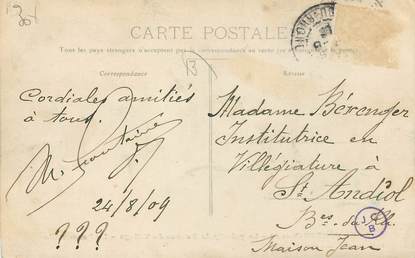 CARTE POSTALE
Tous les pays étrangers n'acceptent pas la correspondance au recto
Correspondance
Adresse
13
Cordiales amitiés
à tous.
24/8/09
???
Madame Bérenger
Institutrice en
Villégiature à
St Andiol
Bes. du Rh.
Maison Jean